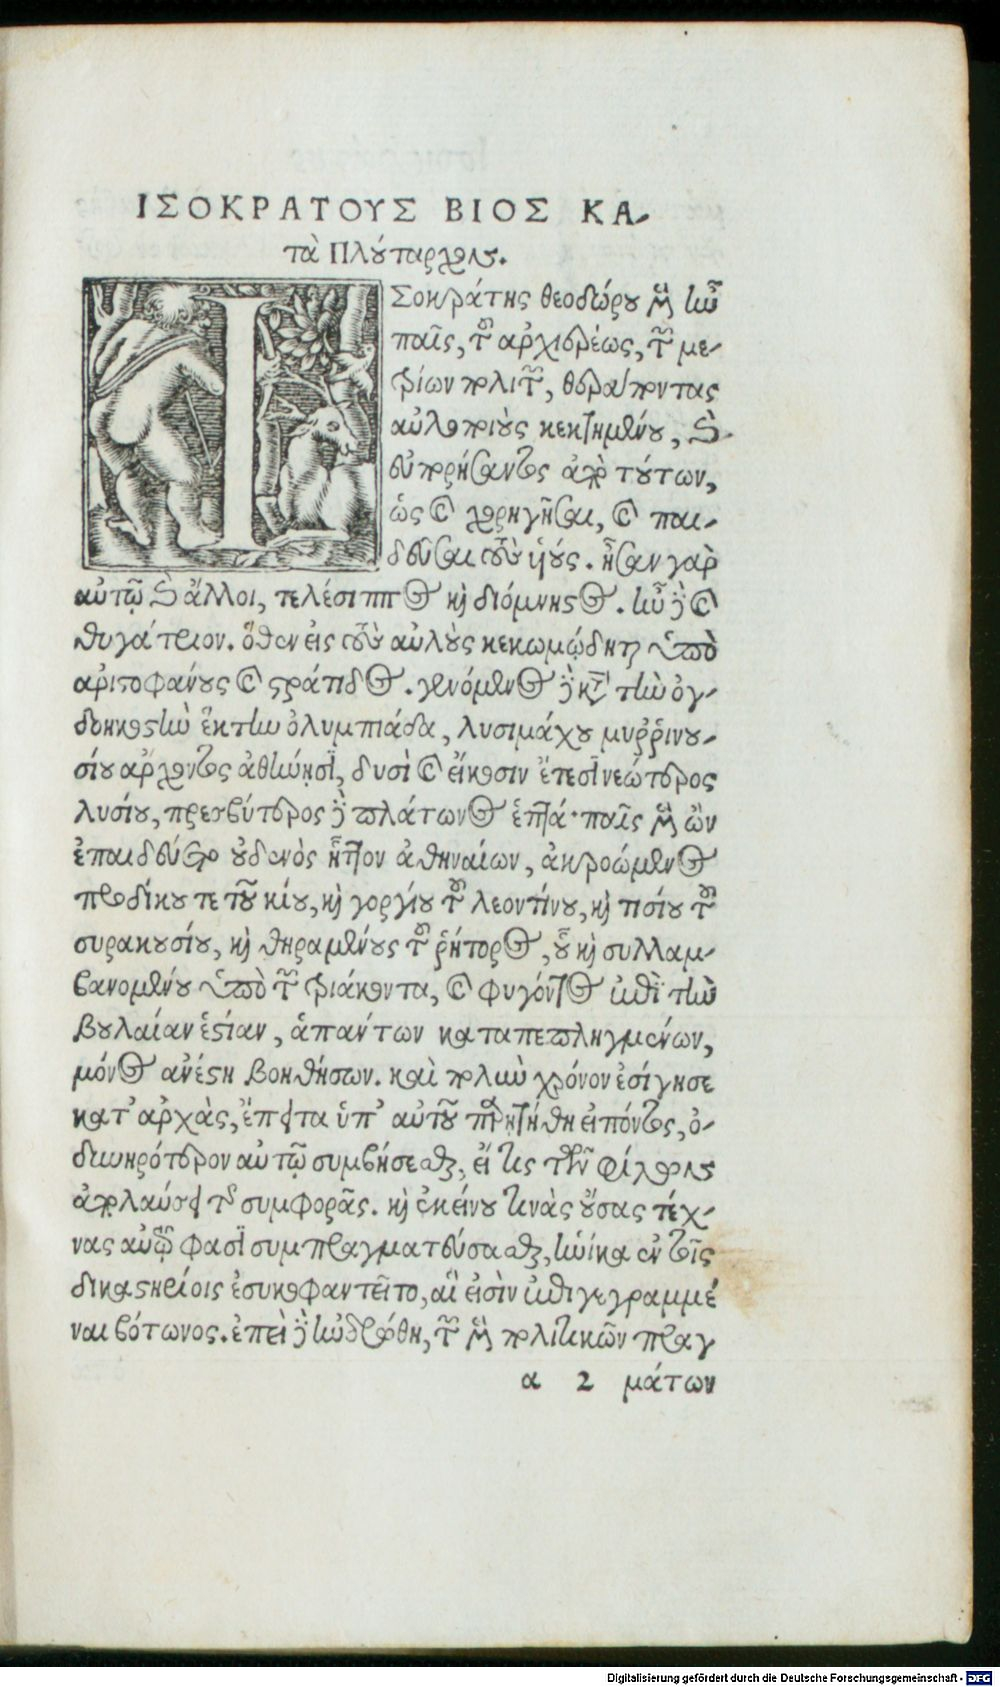 ΙΣΟΚΡΑΤΟΥΣ ΒΙΟΣ ΚΑ-
τὰ Πλούταρχον.
ΙΣοκράτης θεοδώρου μὲν ἦν
παῖς, τοῦ ἀρχιερέως, τῶν με-
τρίων πολιτῶν, θεράποντας
αὐλοποιοὺς κεκτημένου, καὶ
εὐπορήσαντος ἀπὸ τούτων,
ὡς καὶ χορηγῆσαι, καὶ παι-
δεῦσαι τοὺς ὑιούς. ἦσαν γὰρ
αὐτῷ καὶ ἄλλοι, τελέσιππος καὶ διόμνηστος. ἦν δὲ καὶ
θυγάτριον. ὅθεν εἰς τοὺς αὐλοὺς κεκωμῴδηται ὑπὸ
ἀριστοφάνους καὶ στράτιδος. γενόμενος δὲ κατὰ τὴν ὀγ-
δοηκοστὴν ἕκτην ὀλυμπιάδα, λυσιμάχου μυῤῥινου-
σίου ἄρχοντος ἀθήνησϊ, δυσὶ καὶ εἴκοσιν ἔτεσϊ νεώτερος
λυσίου, πρεσβύτερος δὲ πλάτωνος ἑπτά· παῖς μὲν ὢν
ἐπαιδεύετο οὐδενὸς ἧττον ἀθηναίων, ἀκροώμενος
προδίκου τε τοῦ κίου, καὶ γοργίου τοῦ λεοντίνου, καὶ τισίου τοῦ
συρακουσίου, καὶ θηραμένους τοῦ ῥήτορος, οὗ καὶ συλλαμ-
βανομένου ὑπὸ τῶν τριάκοντα, καὶ φυγόντος ἐπὶ τὴν
βουλαίαν ἑστίαν, ἁπάντων καταπεπληγμένων,
μόνος ἀνέστη βοηθήσων. καὶ πολὺν χρόνον ἐσίγησε
κατ' ἀρχὰς, ἔπειτα ὑπ' αὐτοῦ παρῃτήθη εἰπόντος, ὀ-
δυνηρότερον αὐτῷ συμβήσεσθαι, εἴ τις τῶν φίλων
ἀπολαύσει τῆς συμφορᾶς. καὶ ἐκείνου τινὰς οὔσας τέχ-
νας αὐτῷ φασῒ συμπραγματεύσασθαι, ἡνίκα ἐν τοῖς
δικαστηρίοις ἐσυκοφαντεῖτο, αἵ εἰσὶν ἐπιγεγραμμέ
ναι βότωνος. ἐπεὶ δὲ ἠνδρώθη, τῶν μὲν πολιτικῶν πραγ
α 2 μάτων
Digitalisierung gefördert durch die Deutsche Forschungsgemeinschaft - DFG